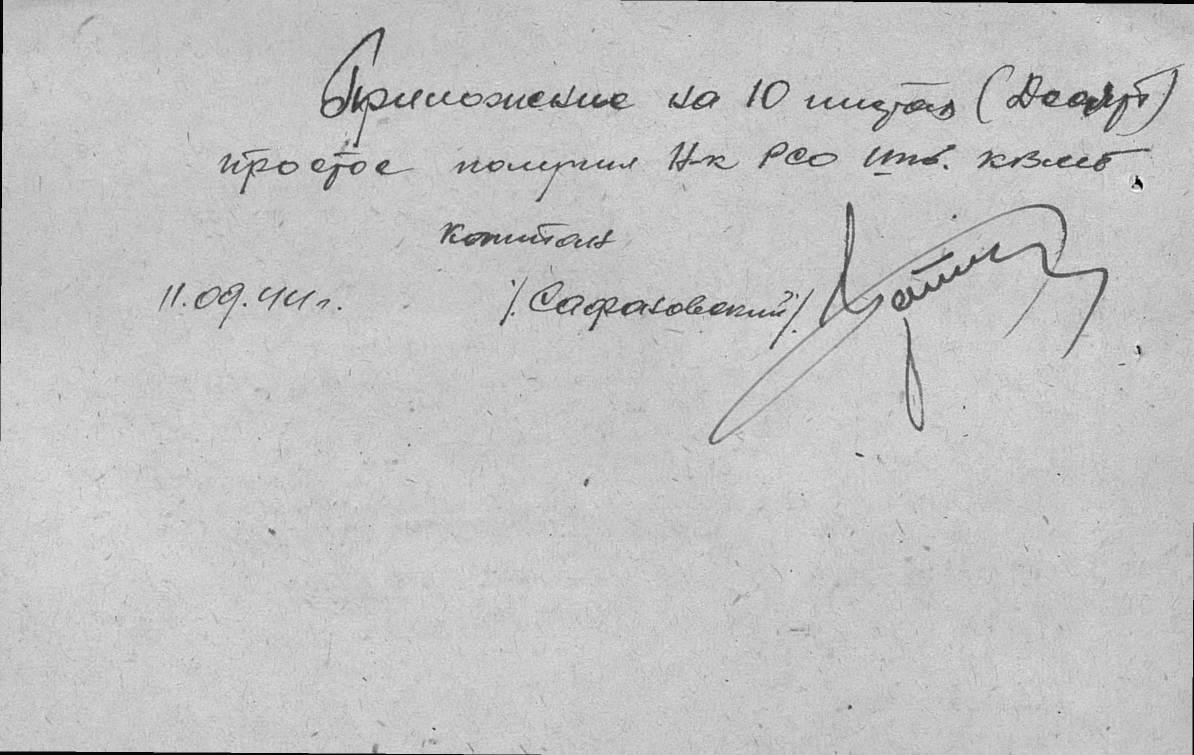 Приложение на 10 листах (Десять)
простое получил Н-к РСО Штб. КВМБ
капитан
11.09.44 г. /Сафановский/